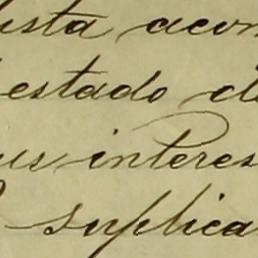 usta acon
estado de
us interes
suplica